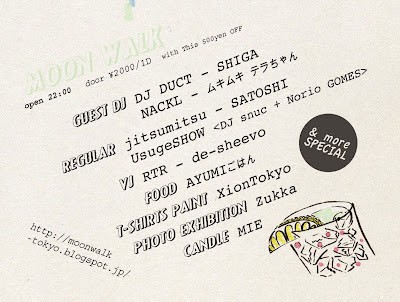 MOON WALK
open 22:00 door ¥2000/1D with This 500yen OFF
GUEST DJ DJ DUCT - SHIGA
NACKL - ムキムキ テラちゃん
REGULAR jitsumitsu - SATOSHI
UsugeSHOW <DJ snuc + Norio GOMES>
VJ RTR - de-sheevo
FOOD AYUMIごはん
T-SHIRTS PAINT XionTokyo
PHOTO EXHIBITION Zukka
CANDLE MIE
& more
SPECIAL
http://moonwalk
-tokyo.blogspot.jp/